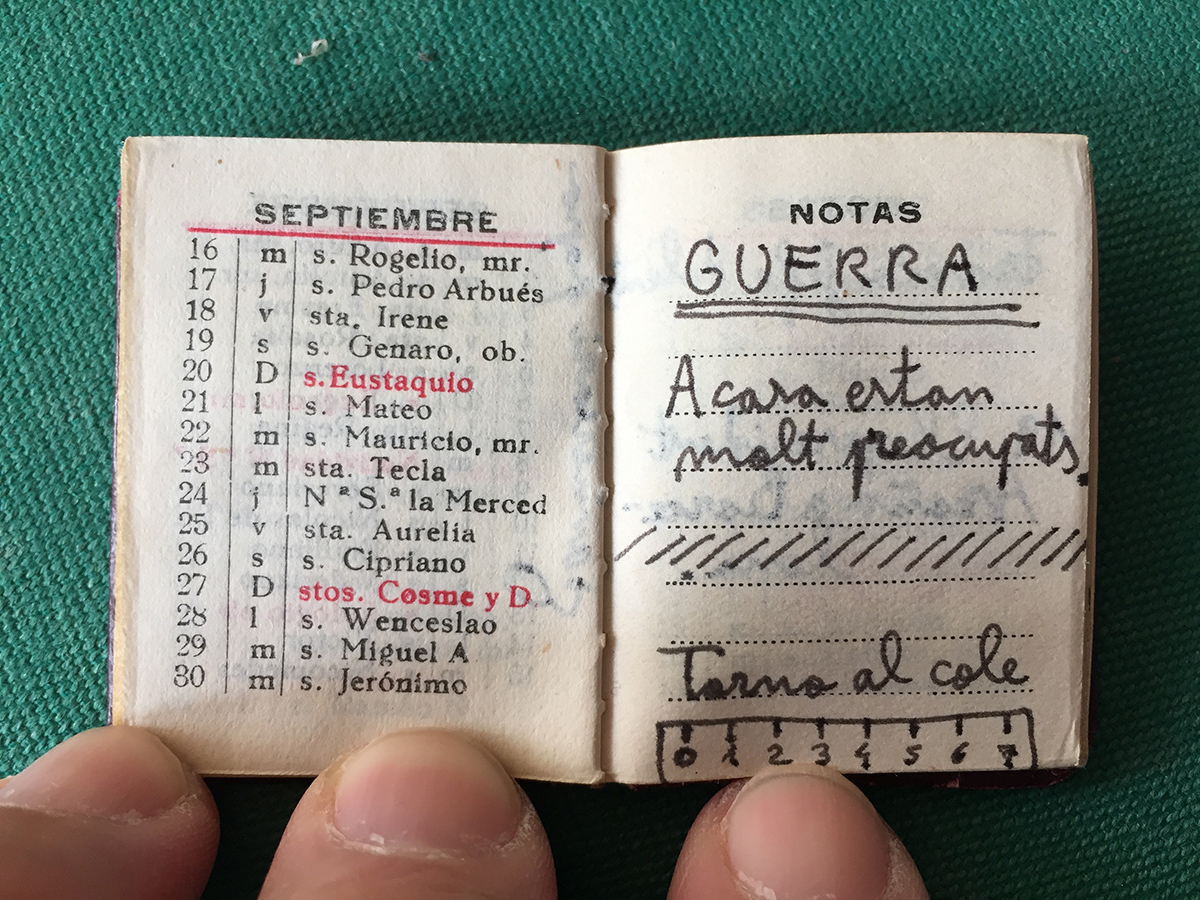 SEPTIEMBRE
16 m s. Rogelio, mr.
17 j s. Pedro Arbués
18 v sta. Irene
19 s s. Genaro, ob.
20 D s. Eustaquio
21 l s. Mateo
22 m s. Mauricio, mr.
23 m sta. Tecla
24 j N ª S.ª la Merced
25 v sta. Aurelia
26 s s. Cipriano
27 D stos. Cosme y D
28 l s. Wenceslao
29 m s. Miguel A
30 m s. Jerónimo
NOTAS
GUERRA
A cara ertan
molt preocupats.
Torno al cole
0 1 2 3 4 5 6 7